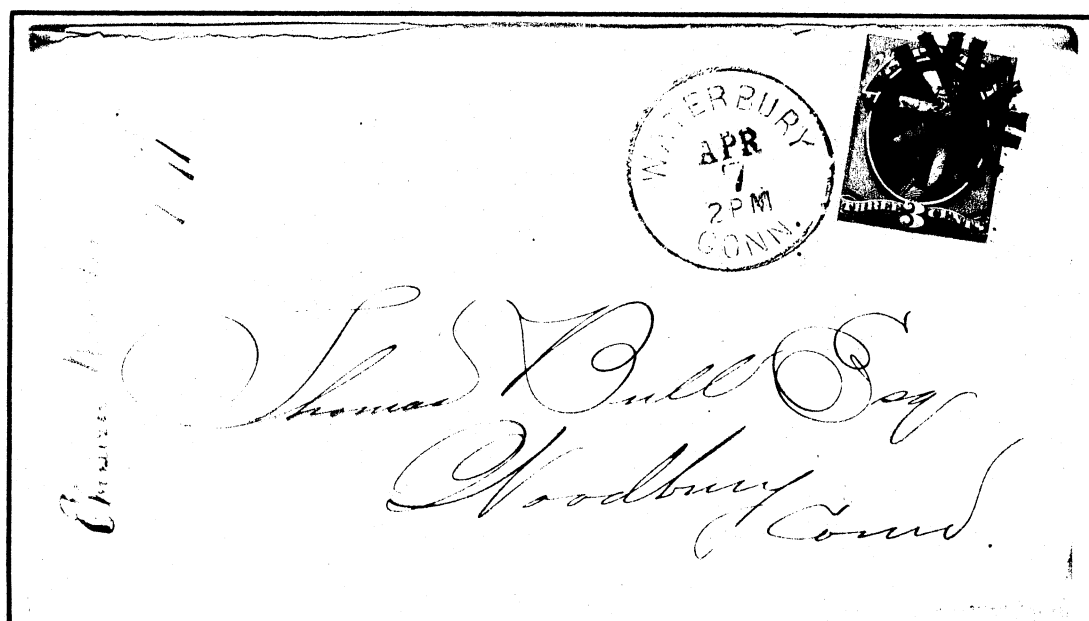 WATERBURY
APR
7
2 PM
CONN.
THREE 3 CENTS
Thomas Bull Esq
Woodbury
Conn.